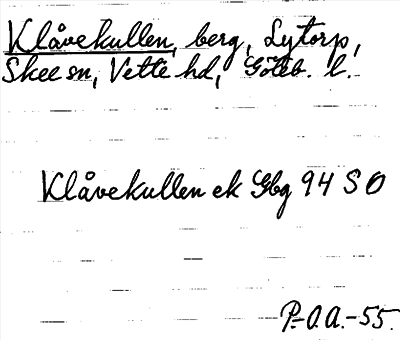 Klåvekullen, berg, Lytorp,
Skee sn, Vette hd, Göteb. l.
Klåvekullen ek Gbg 94 S O
P.-O.A.-55.